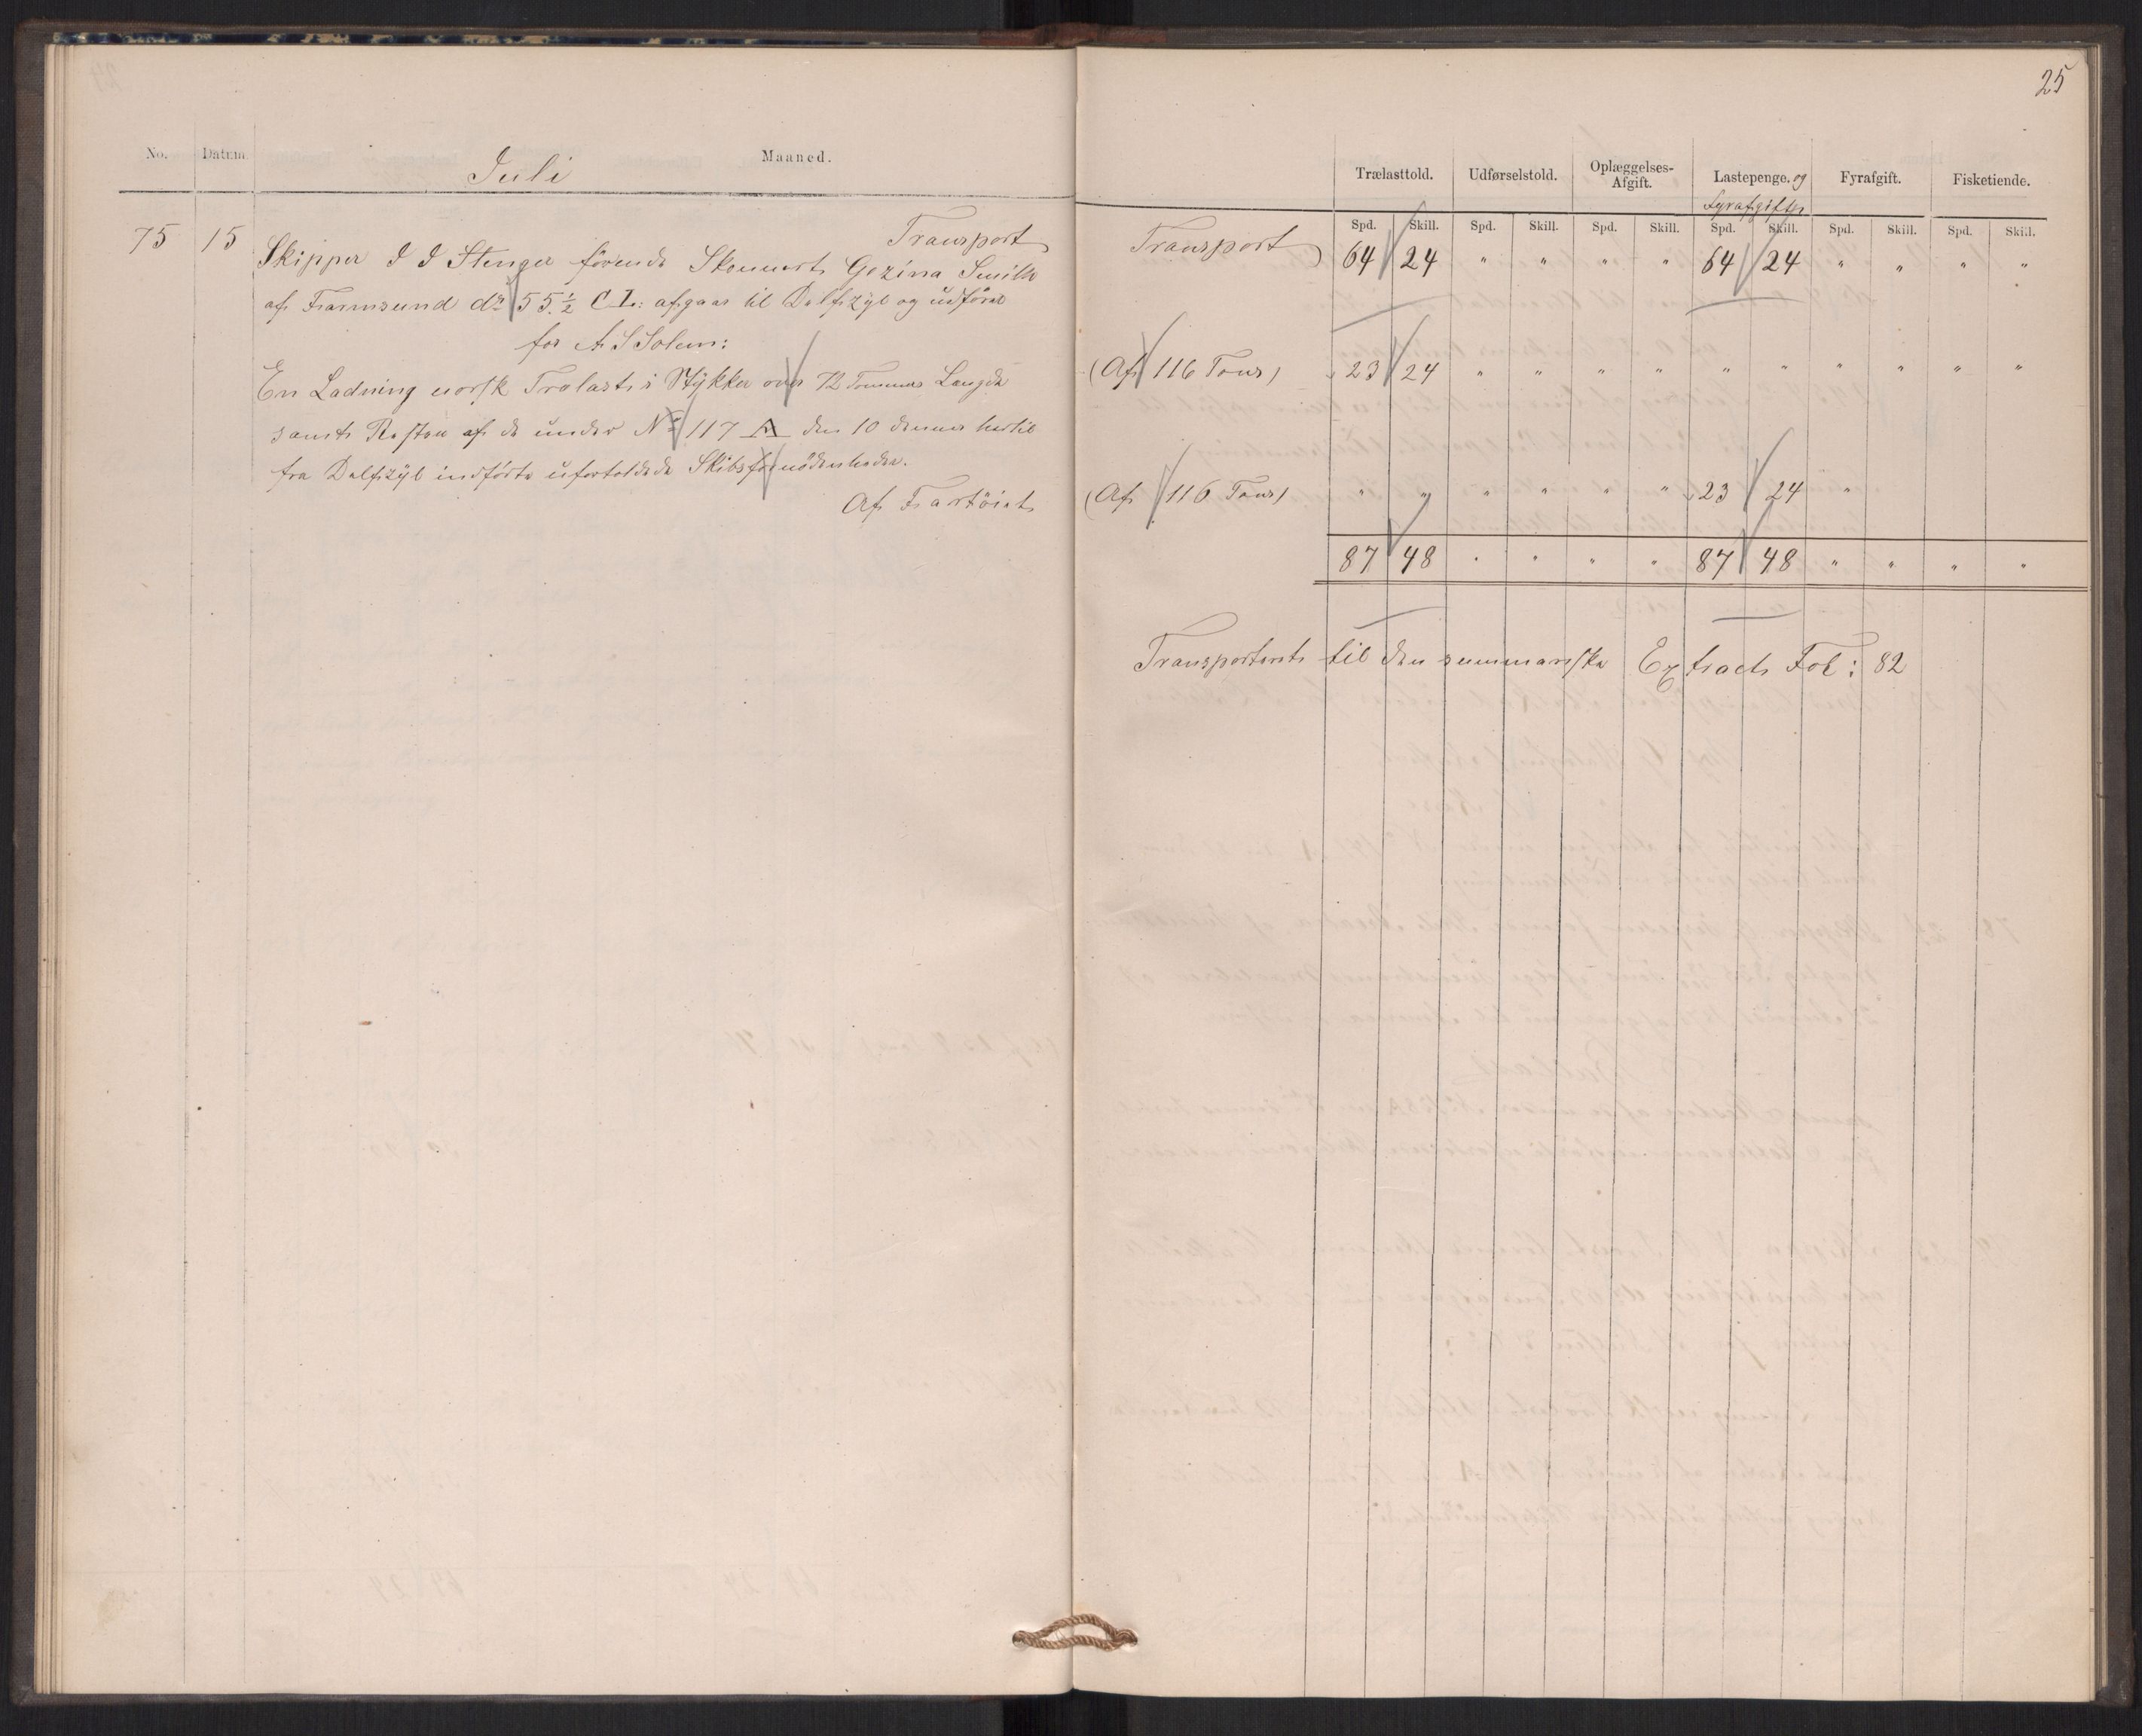 25
No. Datum. Juli Maaned.
Trælasttold. Udførselstold. Oplæggelses-Afgift. Lastepenge. og Fyrafgifter Fyrafgift. Fisketiende.
Spd. Skill. Spd. Skill. Spd. Skill. Spd. Skill. Spd. Skill. Spd. Skill.
Transport
Transport 64 24 " " " " 64 24 " " " "
75 15 Skipper I I Stenger förende Skonnert Gezina Smith
af Farmsund dr 55 ½ C. L: afgaar til Delfzÿl og udförer
for A S Solem:
En Ladning norsk Trælast i Stÿkker over 12 Tommers Længde (Af 116 Tons) 23 24 " " " " " " " " " "
samt Resten af de under No 117 A den 10 dennes hertil
fra Delfzÿl indförte ufortoldede Skibsfornödenheder.
Af Fartöiet (Af 116 Tons) " " " " " " 23 24 "
87 48 " " " " 87 48 " " " "
Transporteret til den summariske Extract Fol: 82